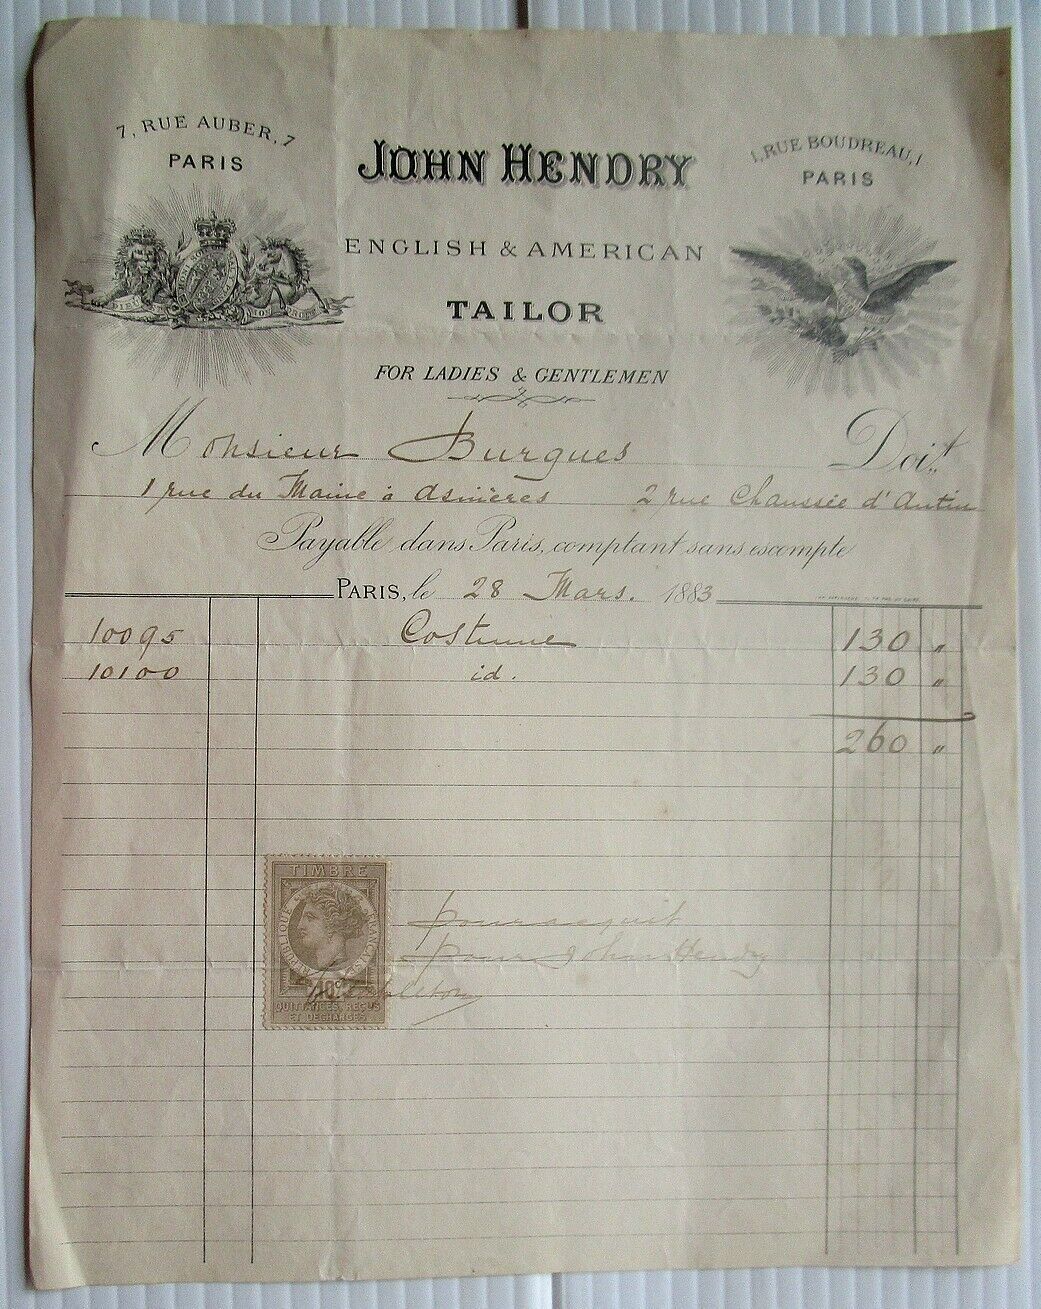 7, RUE AUBER, 7
PARIS
JOHN HENDRY
1, RUE BOUDREAU, 1
PARIS
ENGLISH & AMERICAN
TAILOR
FOR LADIES & GENTLEMEN
Monsieur Burgues Doit
1 rue du Maine à Asnières 2 rue Chaussée d'Antin
Payable dans Paris, comptant sans escompte
PARIS, le 28 Mars. 1883
10095 Costume 130 "
10100 id. 130 "
260 "
TIMBRE
RÉPUBLIQUE FRANÇAISE
10c
QUITTANCES, REÇUS
ET DÉCHARGES
pour acquit
pour John Hendry